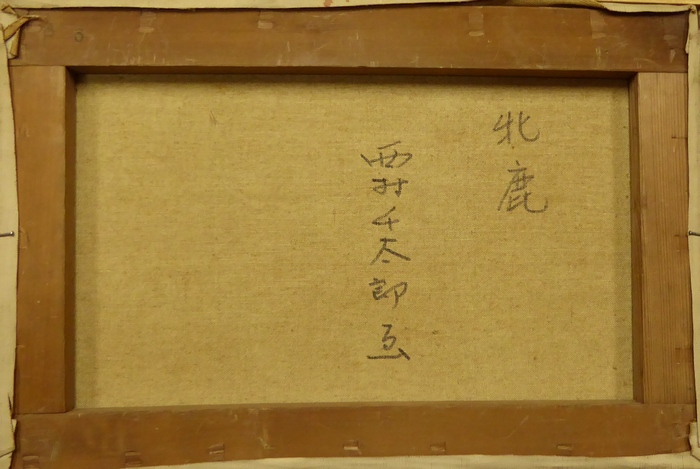 牝鹿
西村千太郎画